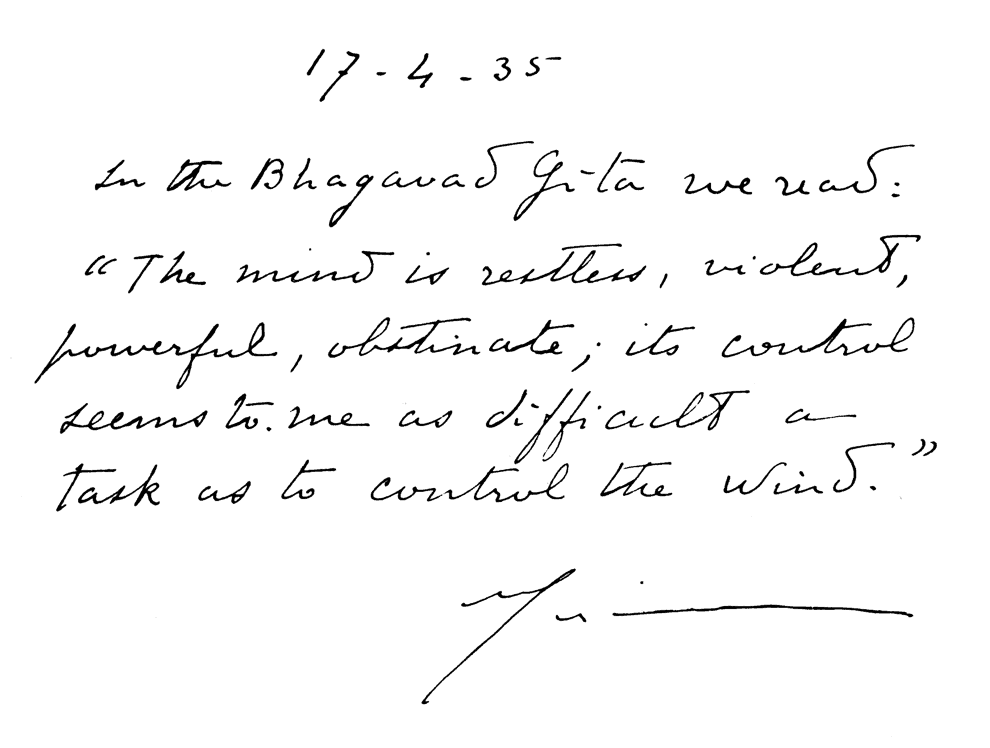 17-4-35
In the Bhagavad Gita we read:
“The mind is restless, violent,
powerful, obstinate; its control
seems to me as difficult a
task as to control the wind.”